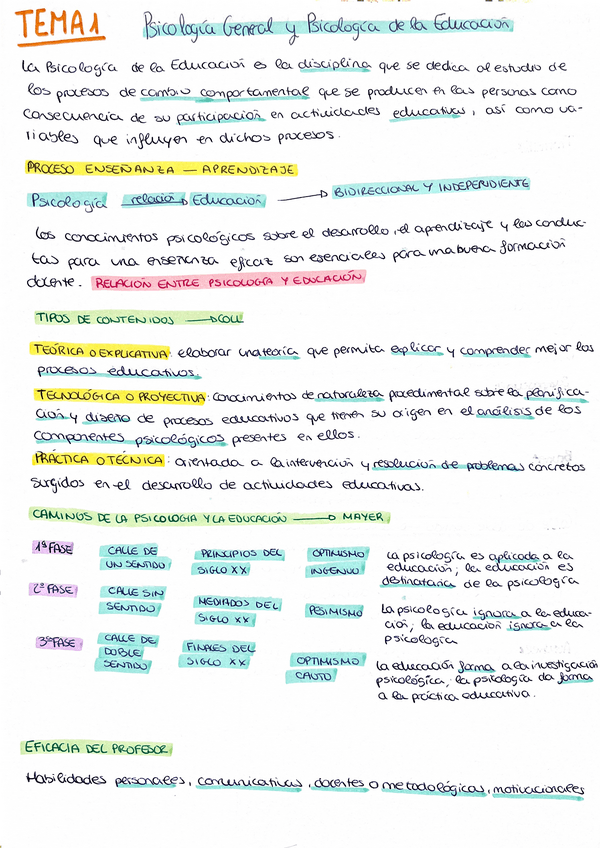 TEMA 1 Psicología General y Psicología de la Educación
La Psicología de la Educación es la disciplina que se dedica al estudio de
los procesos de cambio comportamental que se producen en las personas como
consecuencia de su participación en actividades educativas, así como va-
riables que influyen en dichos procesos.
PROCESO ENSEÑANZA — APRENDIZAJE
Psicología relación Educación → BIDIRECCIONAL Y INDEPENDIENTE
Los conocimientos psicológicos sobre el desarrollo, el aprendizaje y las conduc-
tas para una enseñanza eficaz son esenciales para una buena formación
docente. RELACIÓN ENTRE PSICOLOGÍA Y EDUCACIÓN
TIPOS DE CONTENIDOS → COLL
TEÓRICA O EXPLICATIVA: elaborar una teoría que permita explicar y comprender mejor los
procesos educativos.
TECNOLÓGICA O PROYECTIVA: conocimientos de naturaleza procedimental sobre la planifica-
ción y diseño de procesos educativos que tienen su origen en el análisis de los
componentes psicológicos presentes en ellos.
PRÁCTICA O TÉCNICA: orientada a la intervención y resolución de problemas concretos
surgidos en el desarrollo de actividades educativas.
CAMINOS DE LA PSICOLOGIA Y LA EDUCACIÓN → MAYER
1ª FASE CALLE DE PRINCIPIOS DEL OPTIMISMO La psicología es aplicada a la
UN SENTIDO SIGLO XX INGENUO educación; la educación es
destinataria de la psicología
2ª FASE CALLE SIN MEDIADOS DEL PESIMISMO La psicología ignora a la educa-
SENTIDO SIGLO XX ción; la educación ignora a la
psicología
3ª FASE CALLE DE FINALES DEL OPTIMISMO La educación forma a la investigación
DOBLE SIGLO XX CAUTO psicológica; la psicología da forma
SENTIDO a la práctica educativa.
EFICACIA DEL PROFESOR
Habilidades personales, comunicativas, docentes o metodológicas, motivacionales